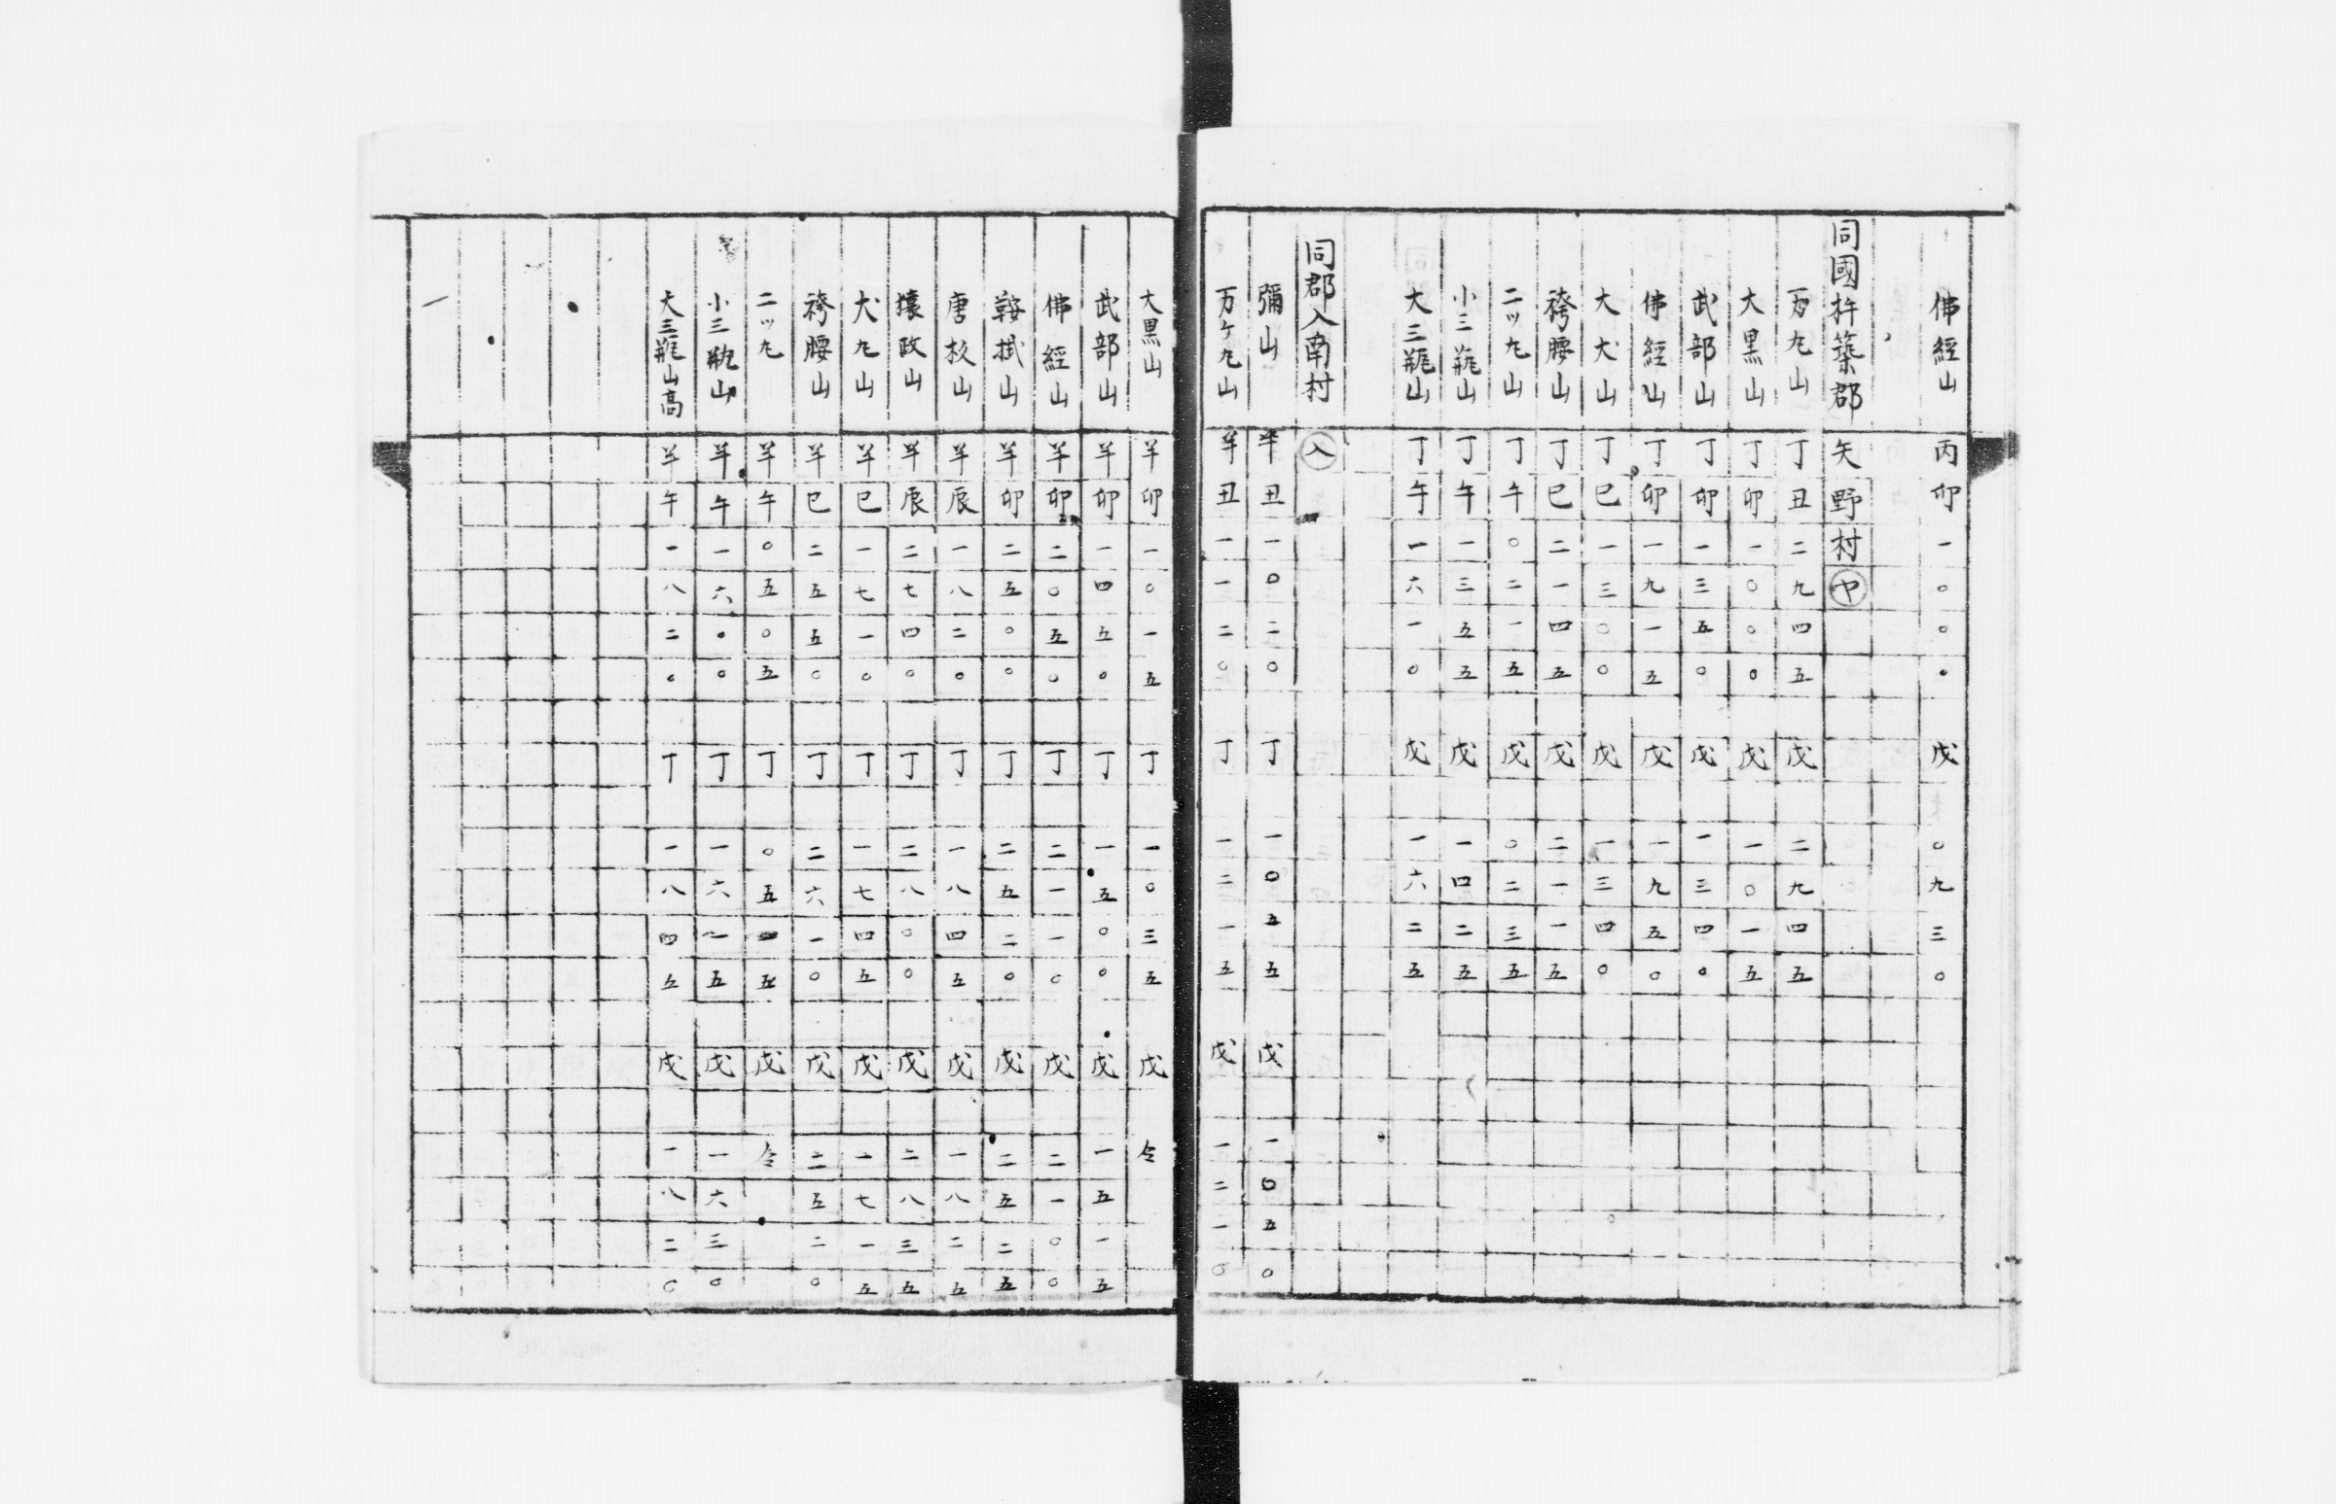 佛經山 丙卯一〇〇〇 戊〇九三〇
同國杵築郡 矢野村 ヤ
万九山 丁丑二九四五 戊二九四五
大黒山 丁卯一〇〇〇 戊一〇一五
武部山 丁卯一三五〇 戊一三四〇
佛經山 丁卯一九一五 戊一九五〇
大犬山 丁巳一三〇〇 戊一三四〇
袴腰山 丁巳二一四五 戊二一一五
二ツ九山 丁午〇二一五 戊〇二三五
小三瓶山 丁午一三五五 戊一四二五
大三瓶山 丁午一六一〇 戊一六二五
同郡入南村 入
彌山 半丑一〇二〇 丁一〇五五 戊一〇五〇
万ケ九山 半丑一一二〇 丁一二一五 戊一二一〇
大黒山 半卯一〇一五 丁一〇三五 戊仝
武部山 半卯一四五〇 丁一五〇〇 戊一五一五
佛經山 半卯二〇五〇 丁二一一〇 戊二一〇〇
鞍掛山 半卯二五〇〇 丁二五二〇 戊二五二五
唐枚山 半辰一八二〇 丁一八四五 戊一八二五
猿政山 半辰二七四〇 丁二八〇〇 戊二八三五
犬九山 半巳一七一〇 丁一七四五 戊一七一五
袴腰山 半巳二五五〇 丁二六一〇 戊二五二〇
二ツ九 半午〇五〇五 丁〇五四五 戊仝
小三瓶山 半午一六〇〇 丁一六一五 戊一六三〇
大三瓶山高 半午一八二〇 丁一八四五 戊一八二〇